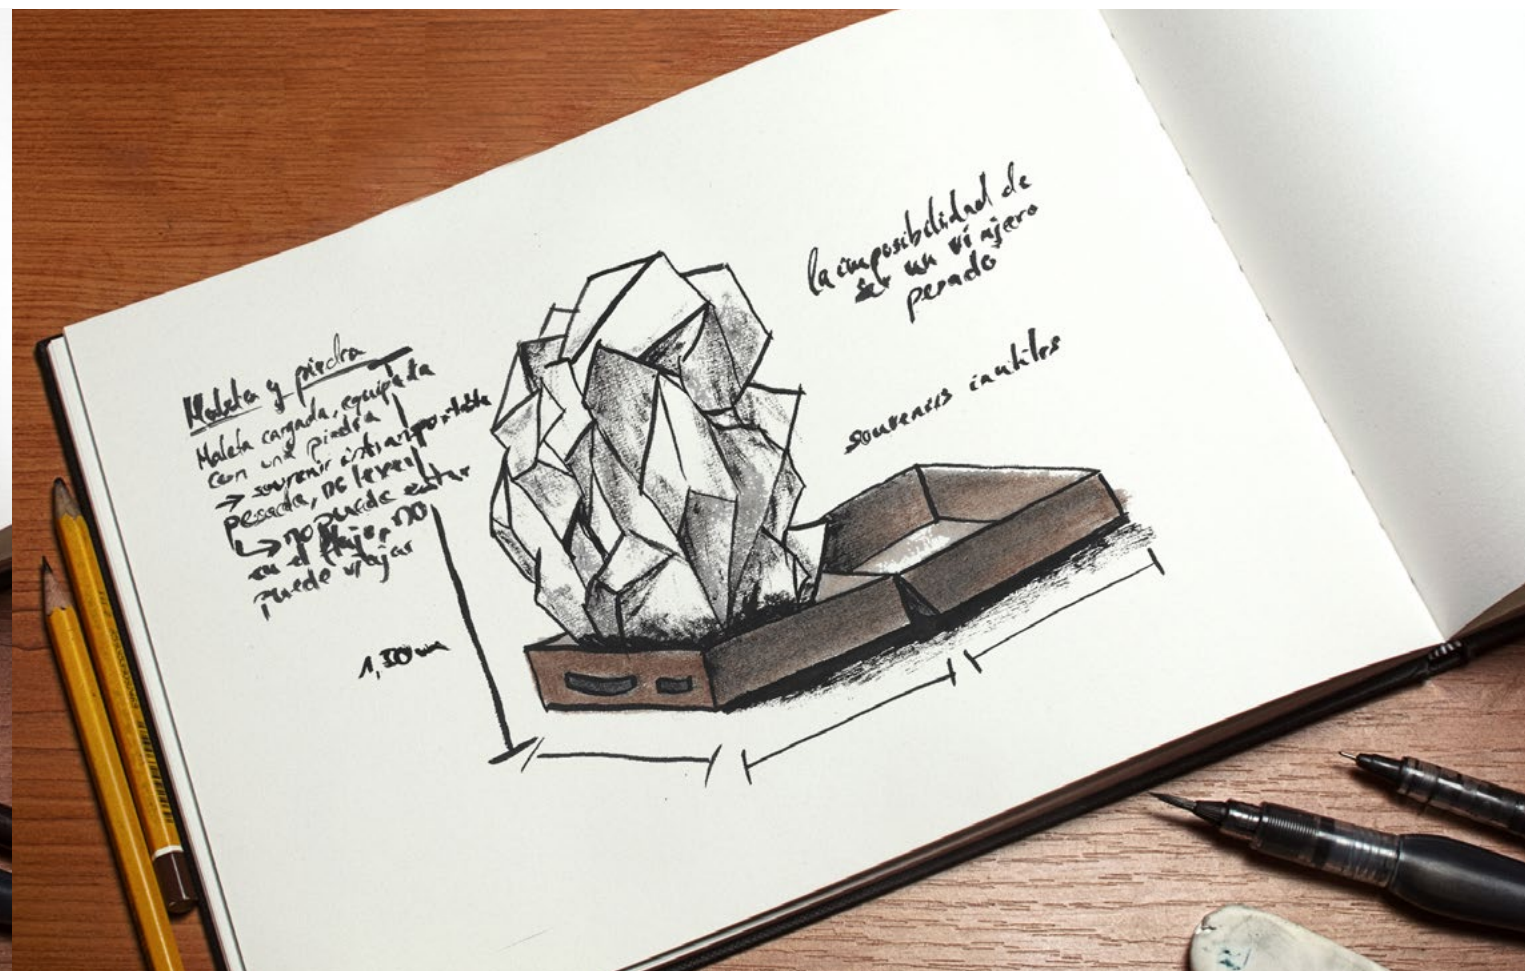 Maleta y piedra
Maleta cargada, equipada
con una piedra
→ souvenir intransportable
pesada, no leve
↳ no puede entrar
en el flujo, no
puede viajar
1,50 m
la imposibilidad de
ser un viajero
pesado
souvenirs inutiles